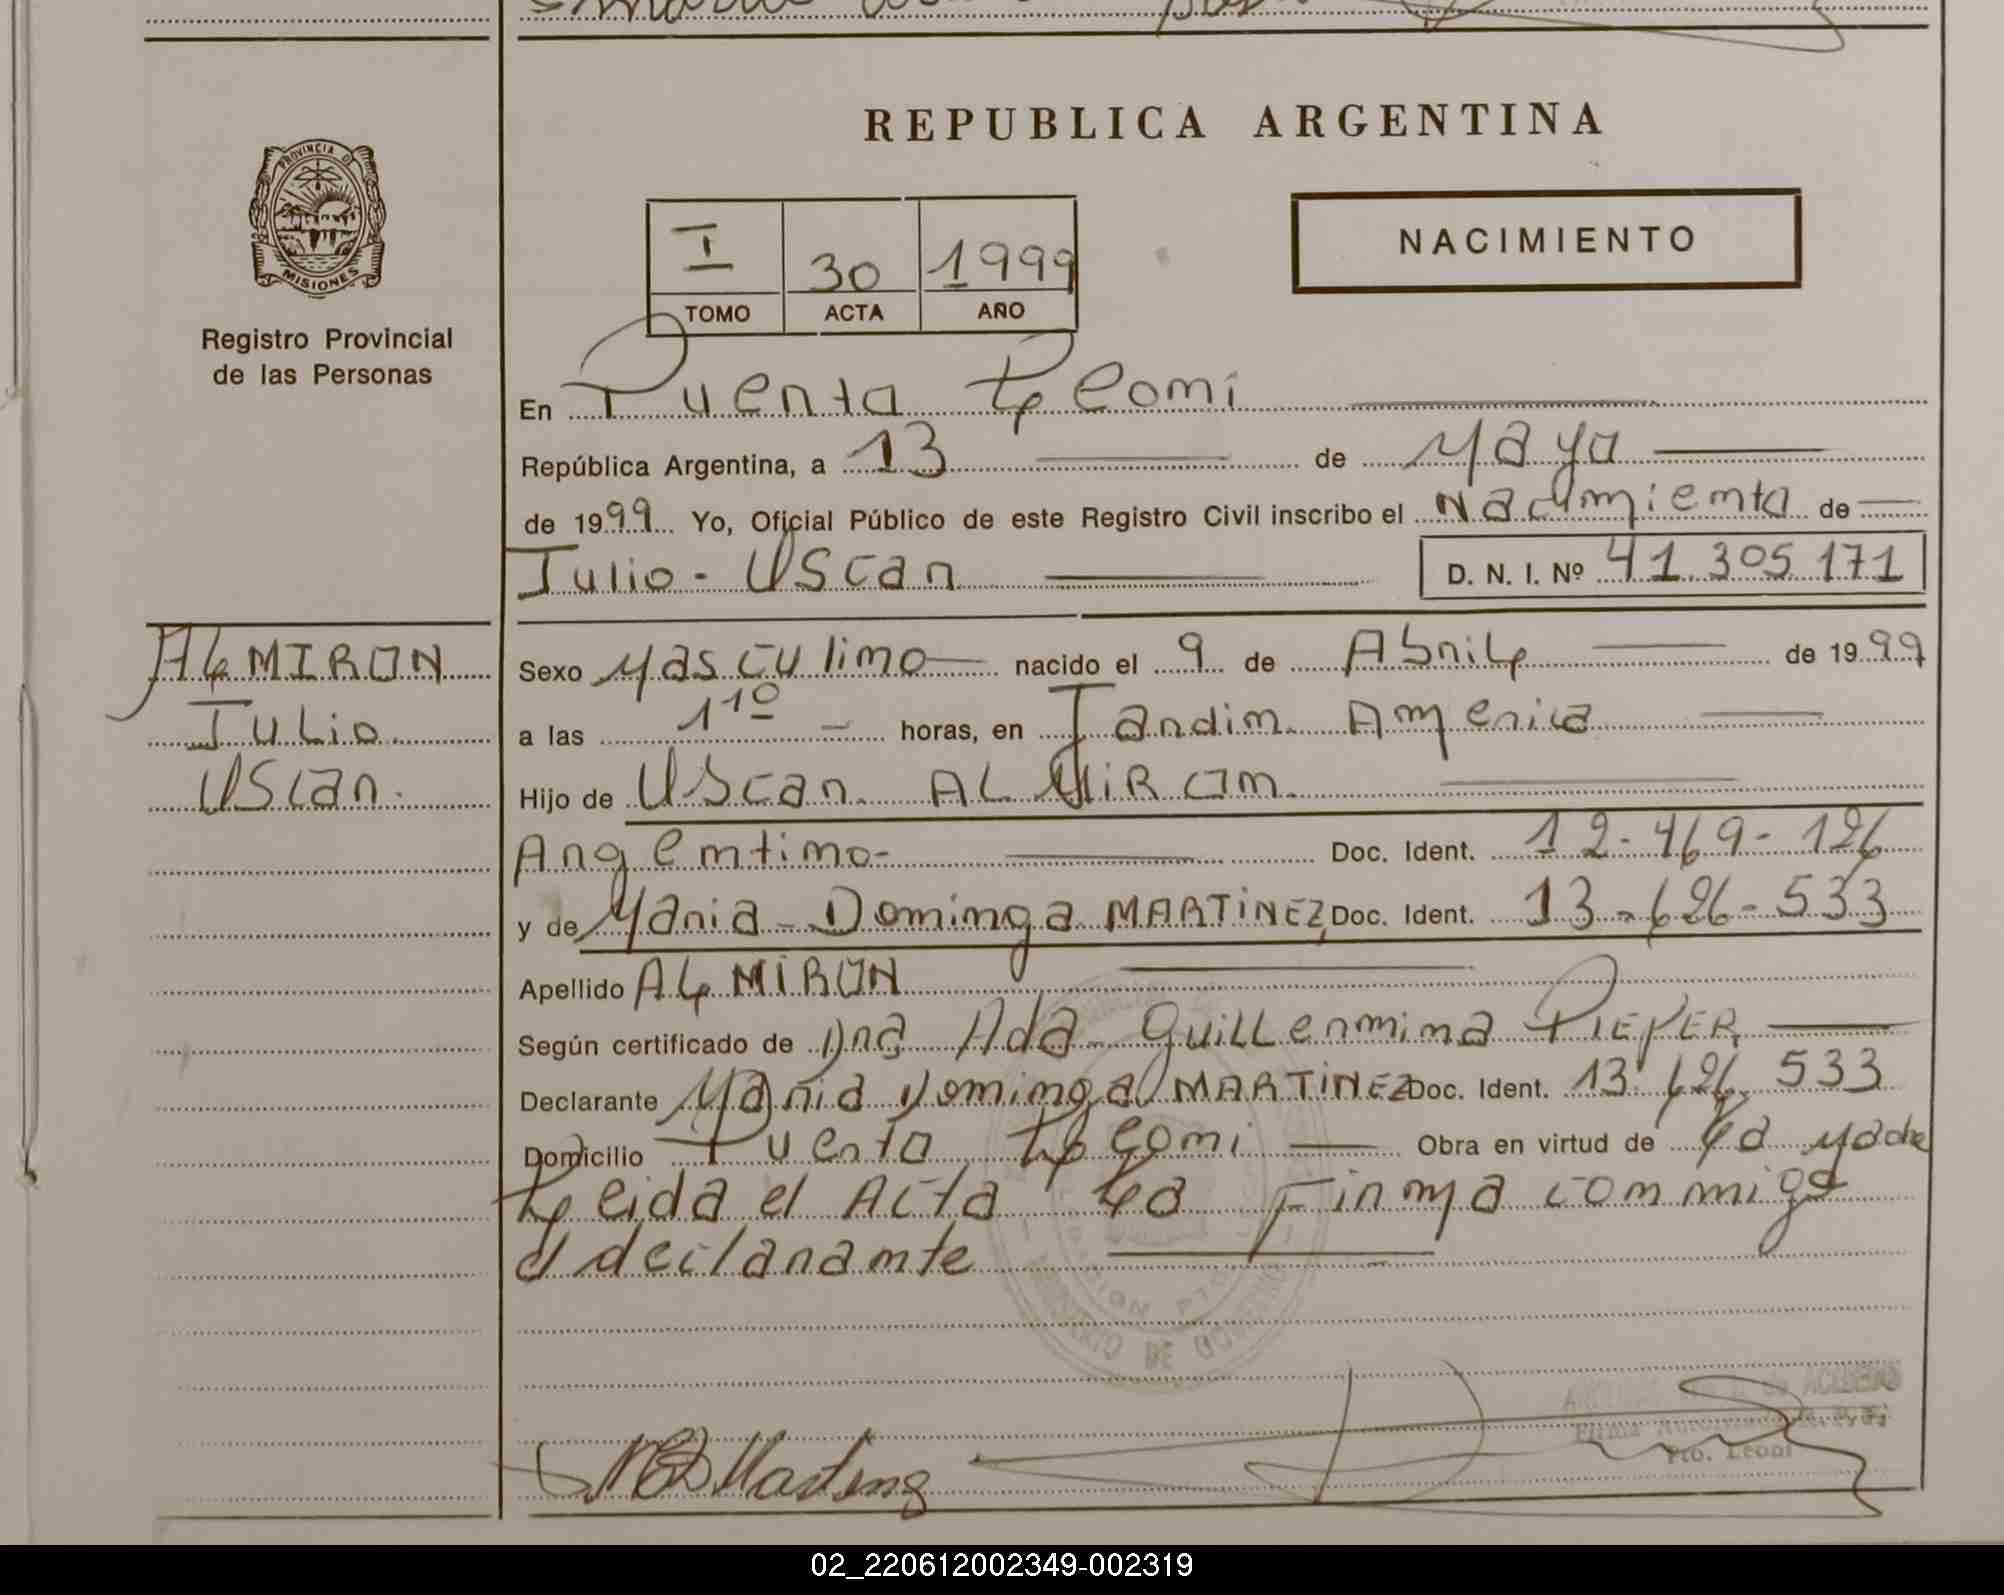 REPUBLICA ARGENTINA
PROVINCIA DE
MISIONES
Registro Provincial
de las Personas
NACIMIENTO
I 30 1999
TOMO ACTA AÑO
En Puerto Leoni
República Argentina, a 13 de Mayo
de 1999 Yo, Oficial Público de este Registro Civil inscribo el Nacimiento de
Julio - Oscar D. N. I. Nº 41.305.171
ALMIRON
Julio
Oscar.
Sexo Masculino nacido el 9 de Abril de 1999
a las 11º horas, en Jardin America
Hijo de Oscar ALMIRON.
Argentino- Doc. Ident. 12-469-126
y de Maria - Dominga MARTiNEZ, Doc. Ident. 13-626-533
Apellido ALMiRON
Según certificado de Dra Ada Guillermina PIEPER,
Declarante Maria Dominga MARTiNEZ Doc. Ident. 13 626 533
Domicilio Puerto Leoni Obra en virtud de La Madre
Leida el Acta La Firma conmigo
el declarante
MINISTERIO DE GOBIERNO
Pto. Leoni
02_220612002349-002319